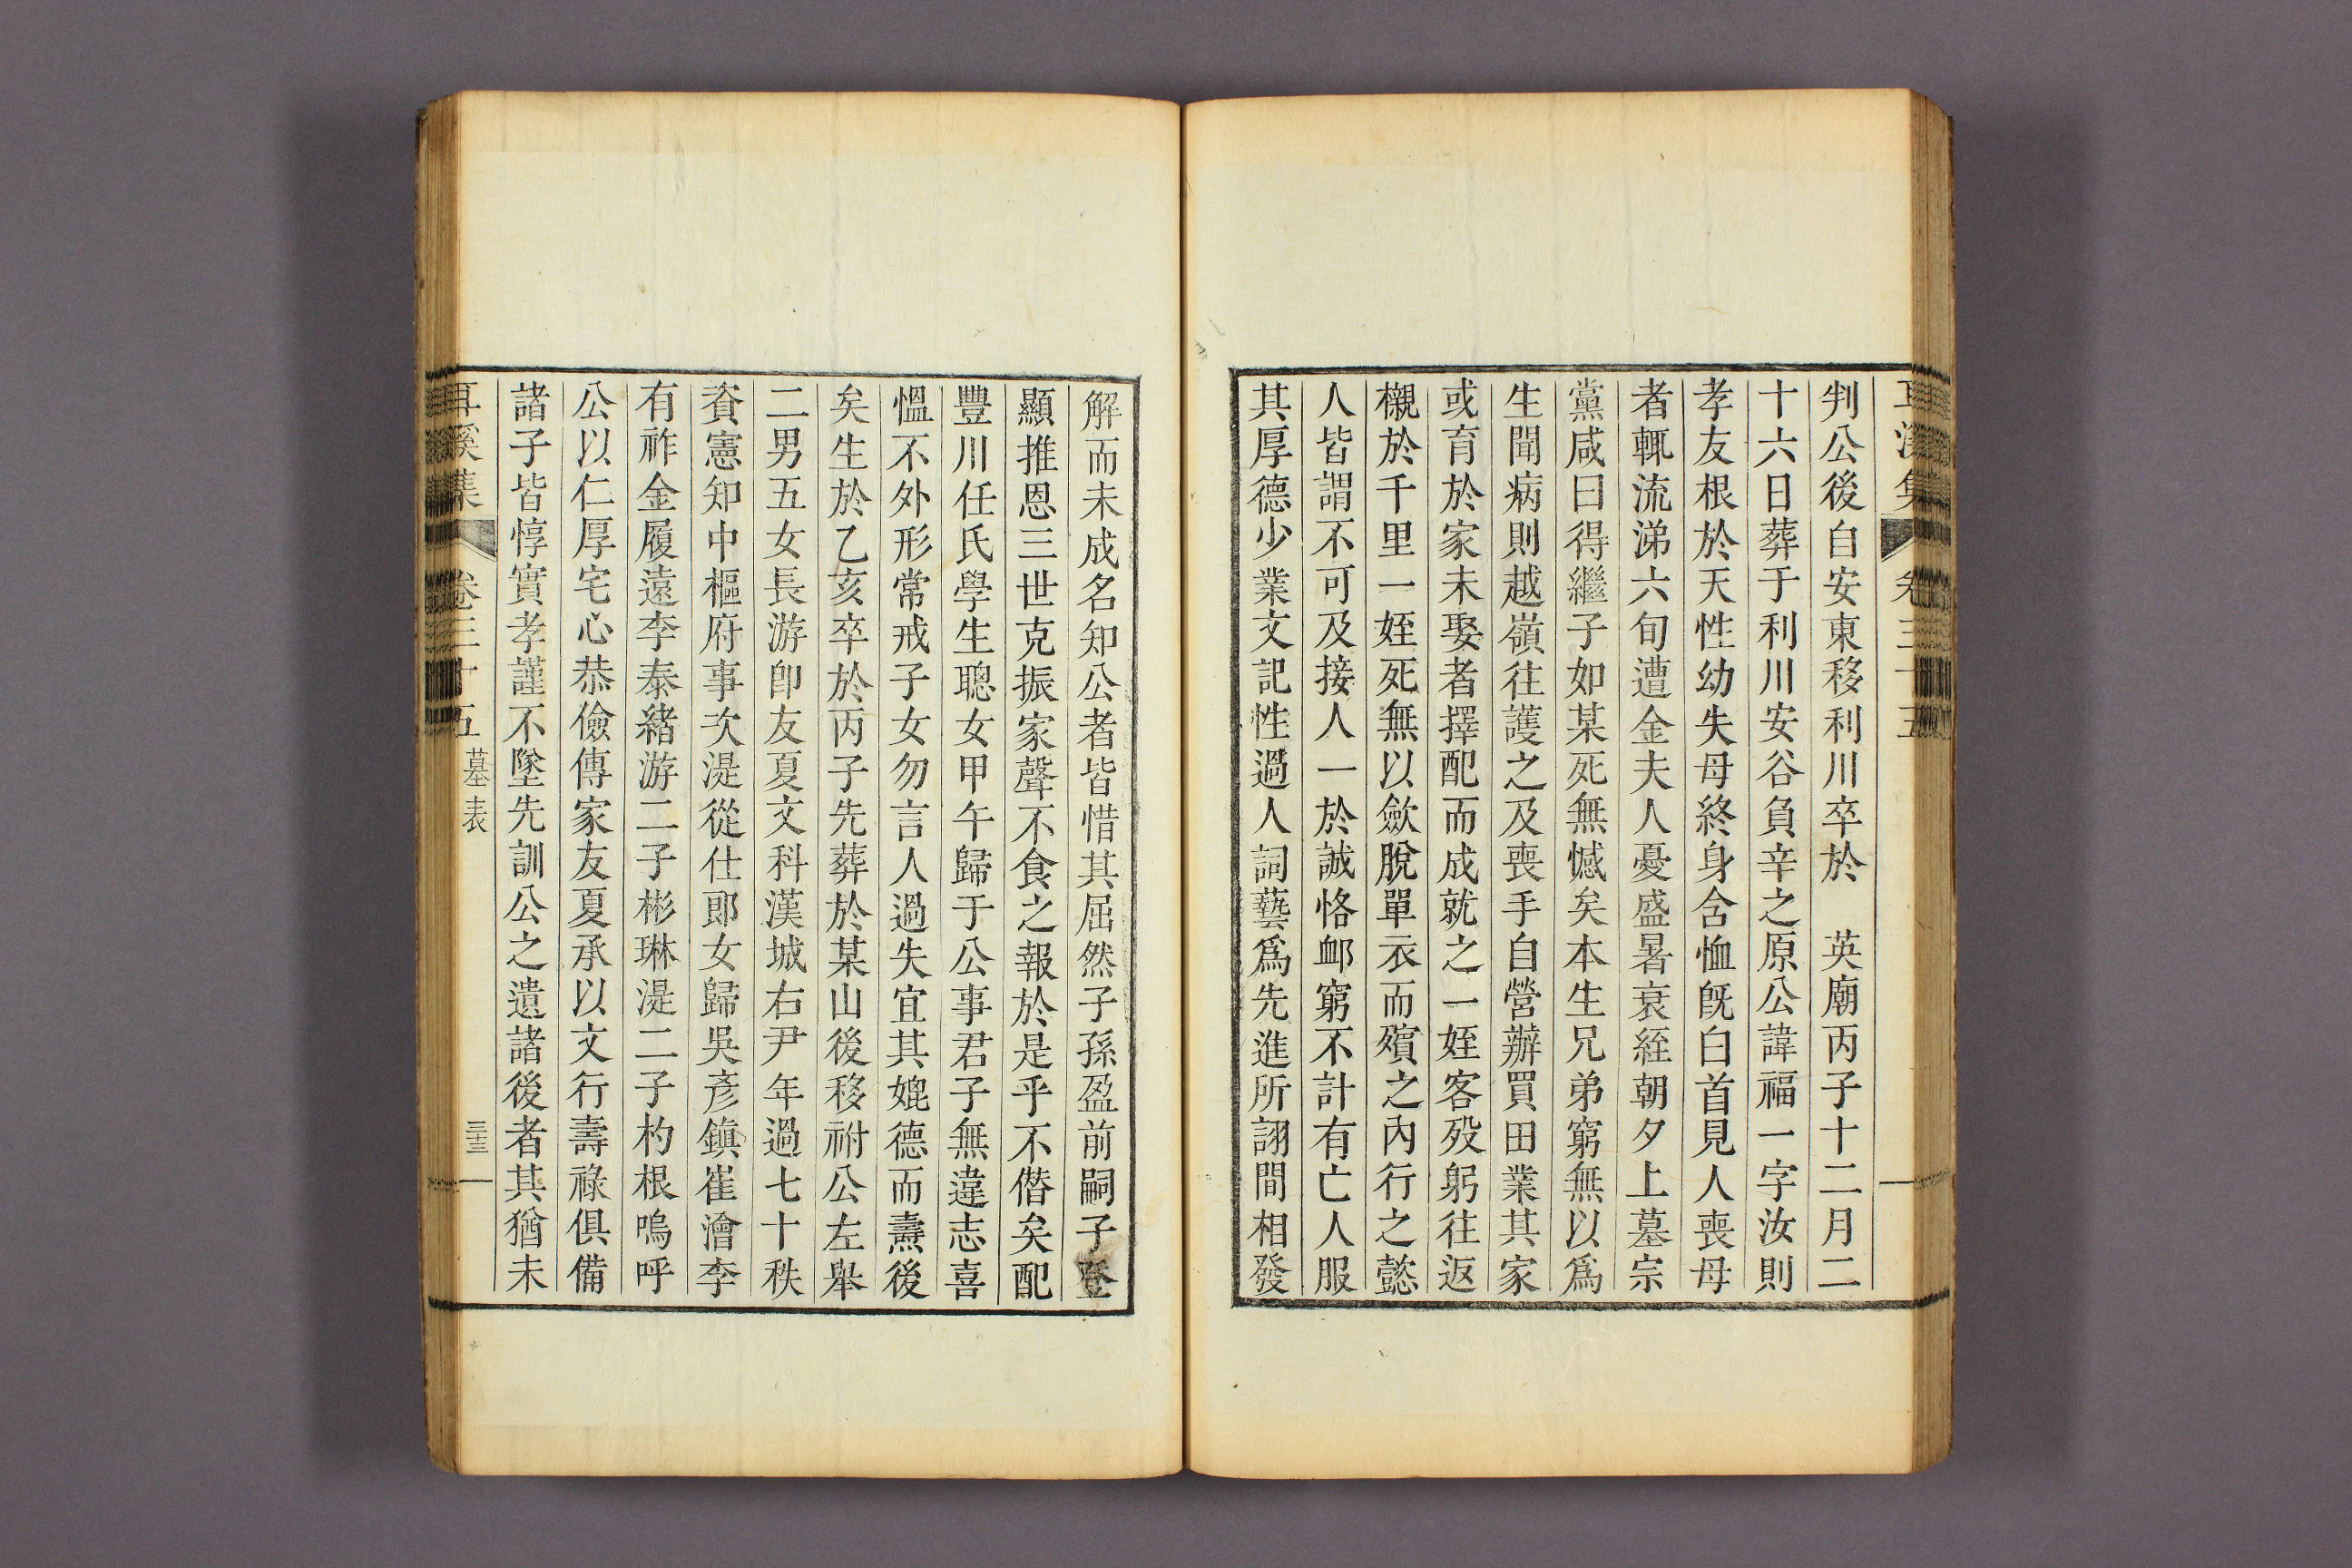 耳溪集 卷三十五
判公後自安東移利川卒於　英廟丙子十二月二
十六日葬于利川安谷負辛之原公諱福一字汝則
孝友根於天性幼失母終身含恤旣白首見人喪母
者輒流涕六旬遭金夫人憂盛暑衰絰朝夕上墓宗
黨咸曰得繼子如某死無憾矣本生兄弟窮無以爲
生聞病則越嶺往護之及喪手自營辦買田業其家
或育於家未娶者擇配而成就之一姪客歿躬往返
櫬於千里一姪死無以歛脫單衣而殯之內行之懿
人皆謂不可及接人一於誠恪卹窮不計有亡人服
其厚德少業文記性過人詞藝爲先進所詡間相發
解而未成名知公者皆惜其屈然子孫盈前嗣子登
顯推恩三世克振家聲不食之報於是乎不僭矣配
豐川任氏學生聰女甲午歸于公事君子無違志喜
慍不外形常戒子女勿言人過失宜其媲德而燾後
矣生於乙亥卒於丙子先葬於某山後移祔公左擧
二男五女長游卽友夏文科漢城右尹年過七十秩
資憲知中樞府事次湜從仕郞女歸吳彥鎭崔澮李
有祚金履遠李泰緖游二子彬琳湜二子杓根嗚呼
公以仁厚宅心恭儉傳家友夏承以文行壽祿俱備
諸子皆惇實孝謹不墜先訓公之遺諸後者其猶未
耳溪集 卷三十五 墓表 三十三